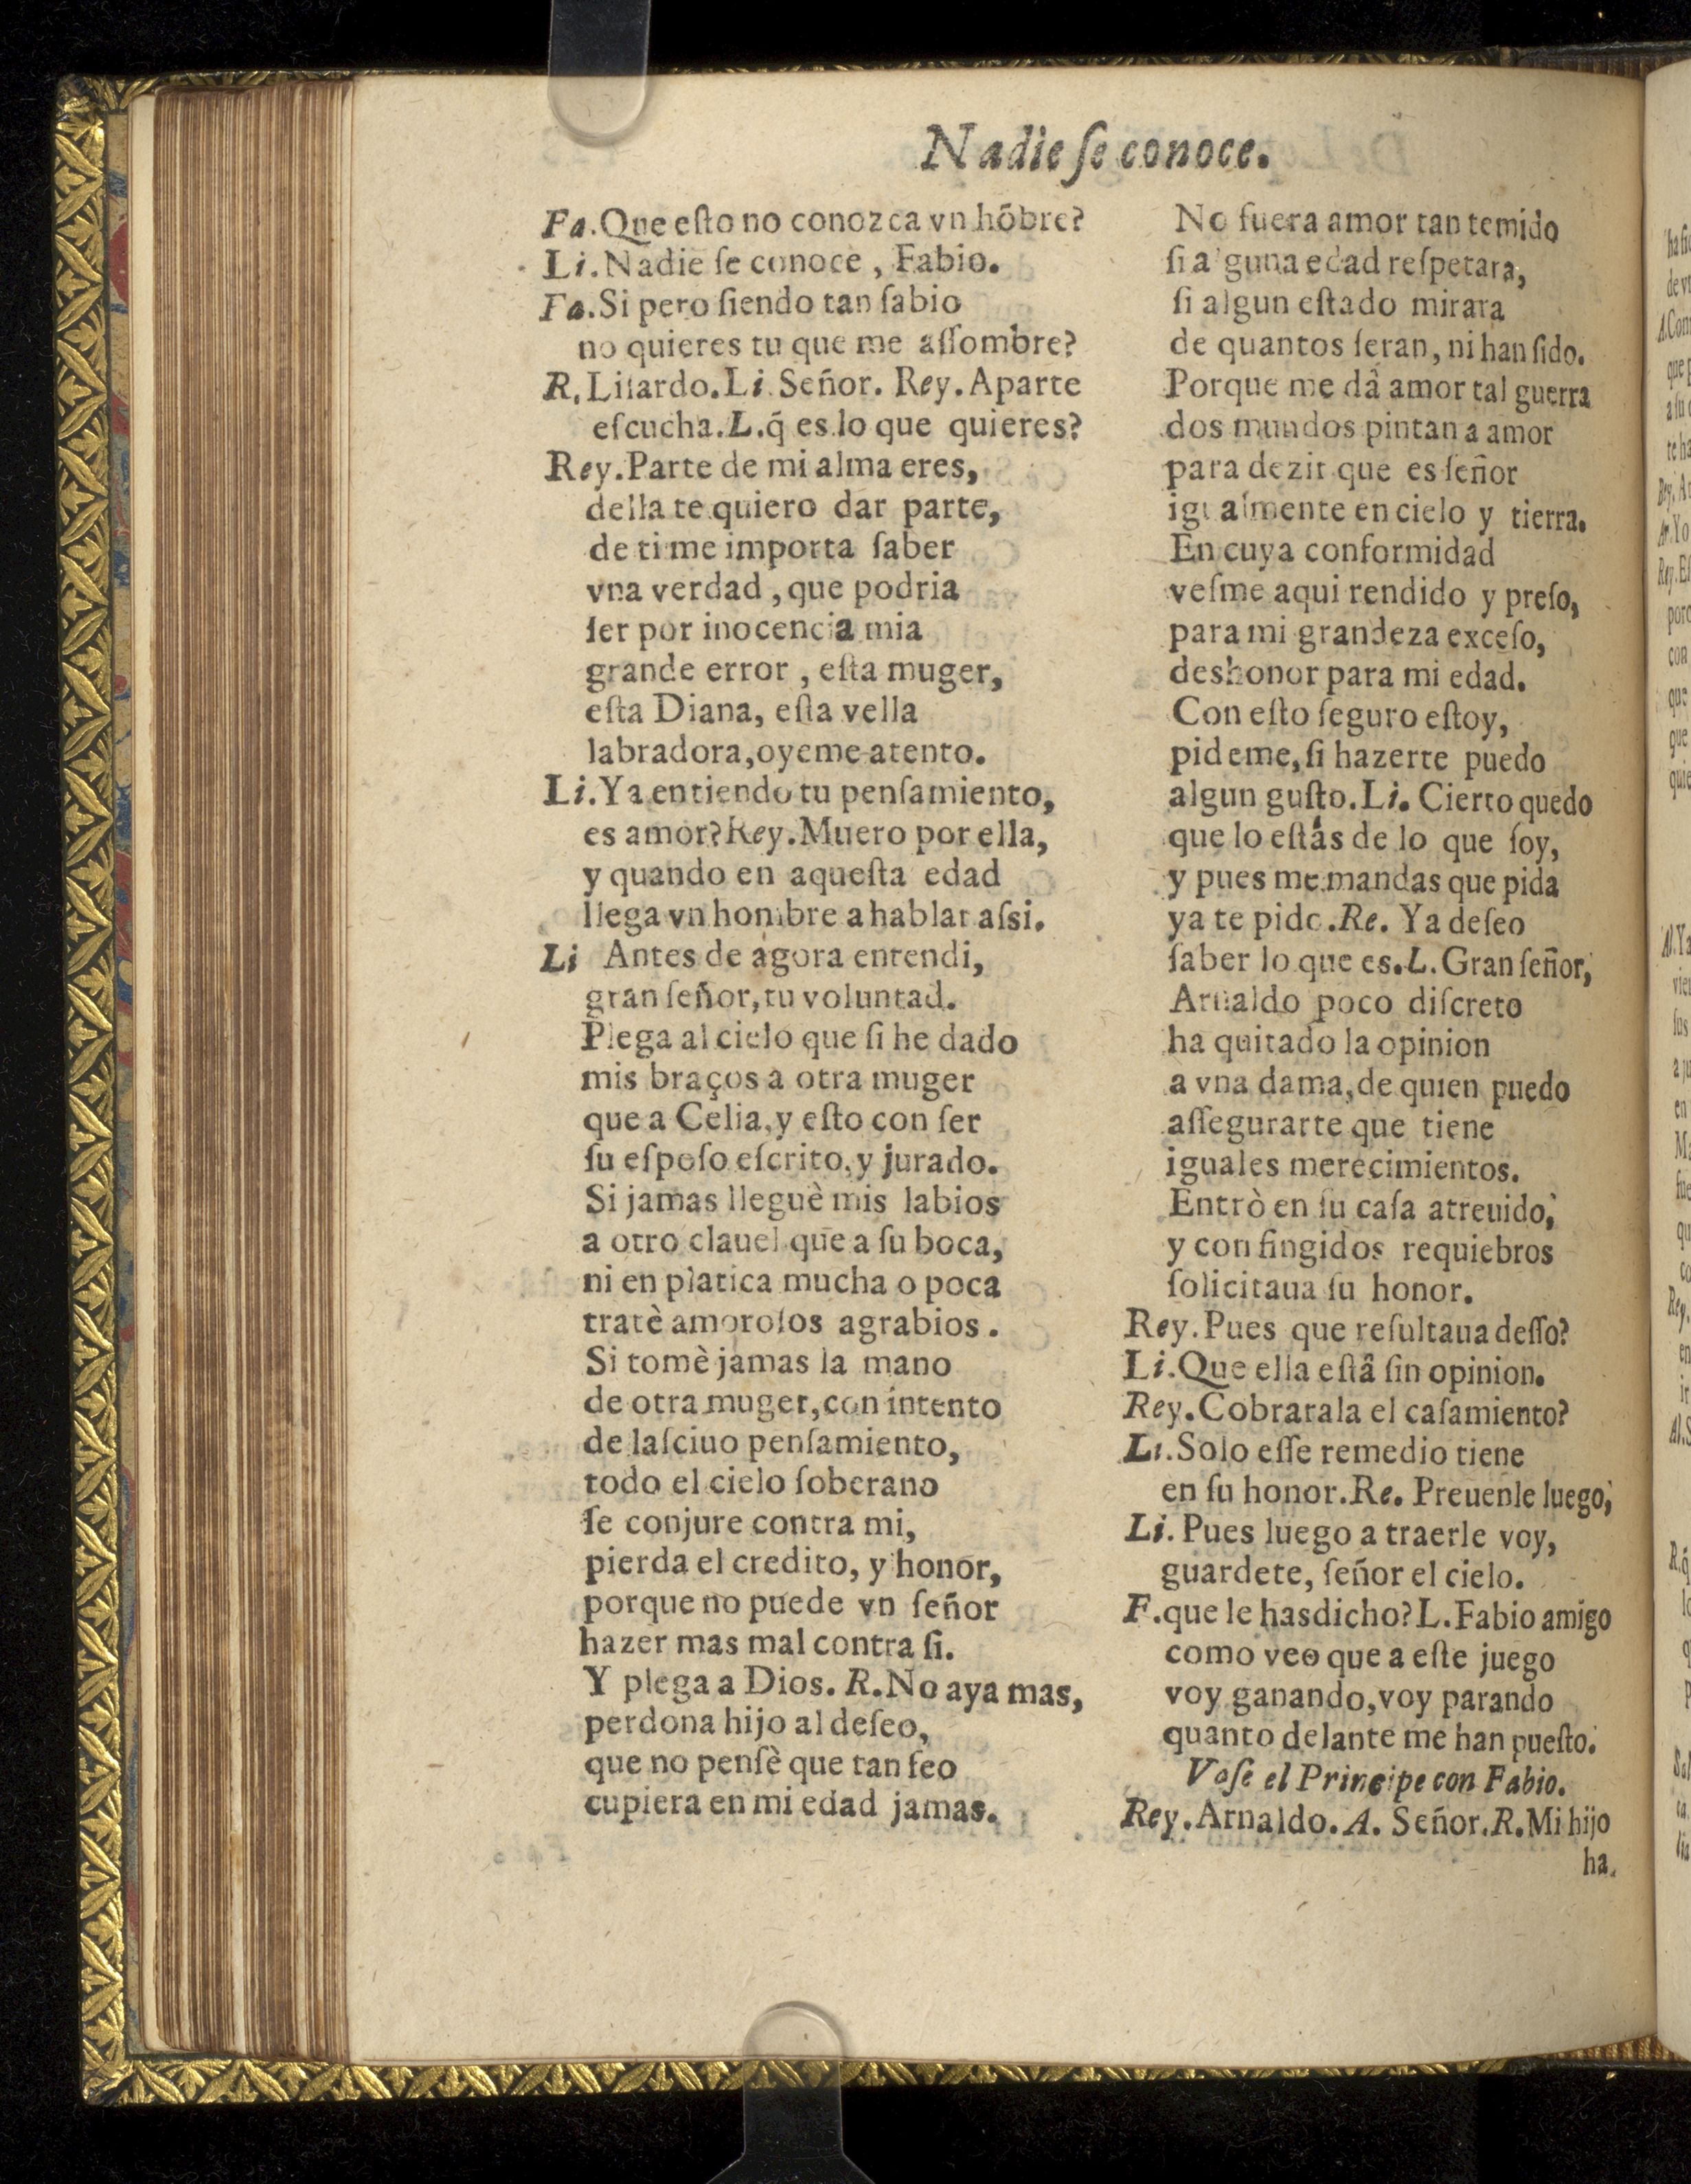 Nadie ſe conoce.
Fa. Que eſto no conozca vn hõbre?
Li. Nadie ſe conoce, Fabio.
Fa. Si pero ſiendo tan ſabio
no quieres tu que me aſſombre?
R. Liſardo. Li. Señor. Rey. Aparte
eſcucha. L. q̃ es lo que quieres?
Rey. Parte de mi alma eres,
della te quiero dar parte,
de ti me importa ſaber
vna verdad, que podria
ſer por inocencia mia
grande error, eſta muger,
eſta Diana, eſta vella
labradora, oyeme atento.
Li. Ya entiendo tu penſamiento,
es amor? Rey. Muero por ella,
y quando en aqueſta edad
llega vn hombre a hablar aſsi.
Li Antes de agora entendi,
gran ſeñor, tu voluntad.
Plega al cielo que ſi he dado
mis braços a otra muger
que a Celia, y eſto con ſer
ſu eſpoſo eſcrito, y jurado.
Si jamas lleguè mis labios
a otro clauel que a ſu boca,
ni en platica mucha o poca
tratè amoroſos agrabios.
Si tomè jamas la mano
de otra muger, con intento
de laſciuo penſamiento,
todo el cielo ſoberano
ſe conjure contra mi,
pierda el credito, y honor,
porque no puede vn ſeñor
hazer mas mal contra ſi.
Y plega a Dios. R. No aya mas,
perdona hijo al deſeo,
que no penſè que tan feo
cupiera en mi edad jamas.
No fuera amor tan temido
ſi alguna edad reſpetara,
ſi algun eſtado mirara
de quantos ſeran, ni han ſido.
Porque me dâ amor tal guerra
dos mundos pintan a amor
para dezir que es ſeñor
igualmente en cielo y tierra.
En cuya conformidad
veſme aqui rendido y preſo,
para mi grandeza exceſo,
deshonor para mi edad.
Con eſto ſeguro eſtoy,
pideme, ſi hazerte puedo
algun guſto. Li. Cierto quedo
que lo eſtás de lo que ſoy,
y pues me mandas que pida
ya te pido. Re. Ya deſeo
ſaber lo que es. L. Gran ſeñor,
Arnaldo poco diſcreto
ha quitado la opinion
a vna dama, de quien puedo
aſſegurarte que tiene
iguales merecimientos.
Entrò en ſu caſa atreuido,
y con fingidos requiebros
ſolicitaua ſu honor.
Rey. Pues que reſultaua deſſo?
Li. Que ella eſtâ ſin opinion.
Rey. Cobrarala el caſamiento?
Li. Solo eſſe remedio tiene
en ſu honor. Re. Preuenle luego,
Li. Pues luego a traerle voy,
guardete, ſeñor el cielo.
F. que le has dicho? L. Fabio amigo
como veo que a eſte juego
voy ganando, voy parando
quanto delante me han pueſto.
Vaſe el Principe con Fabio.
Rey. Arnaldo. A. Señor. R. Mi hijo
ha